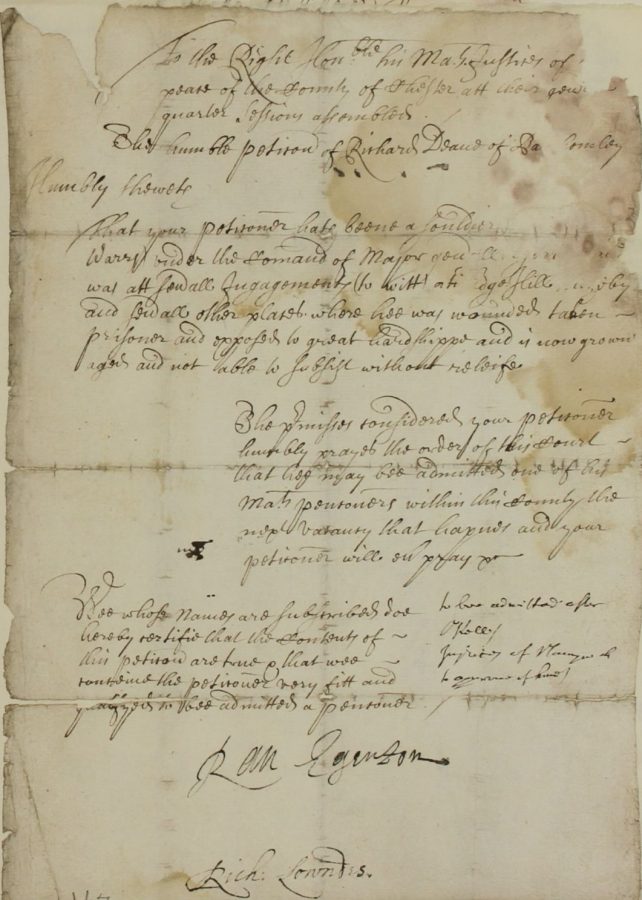 To the Right Hon:ble his Ma:ts Justices of
peace of the County of Chester att their
quarter Sessions assembled
The humble peticon of Richard Deane of
Humbly sheweth
That your peticoner hath beene a souldier
Warrs under the Comand of Major
was att sev'all Ingagements (to witt) att Edgehill
and sev'all other places where hee was wounded taken
prisoner and opposed to great hardshippe and is now growne
aged and not able to subsist without releife
The p'misses considered your peticoner
humbly prayes the order of this Court
that hee may bee admitted one of his
Ma:ts penconers within this County the
next vacancy that hapnes and your
peticoner will ev'pray &c
Wee whose names are subscribed doe
hereby certifie that the Contents of
this peticon are true & that wee
conceive the peticoner very fitt and
qualifyed to bee admitted a penconer
to bee admitted after
Kelly
Justices of
to approve of him
Ran Egerton
Rich: Lowndes.